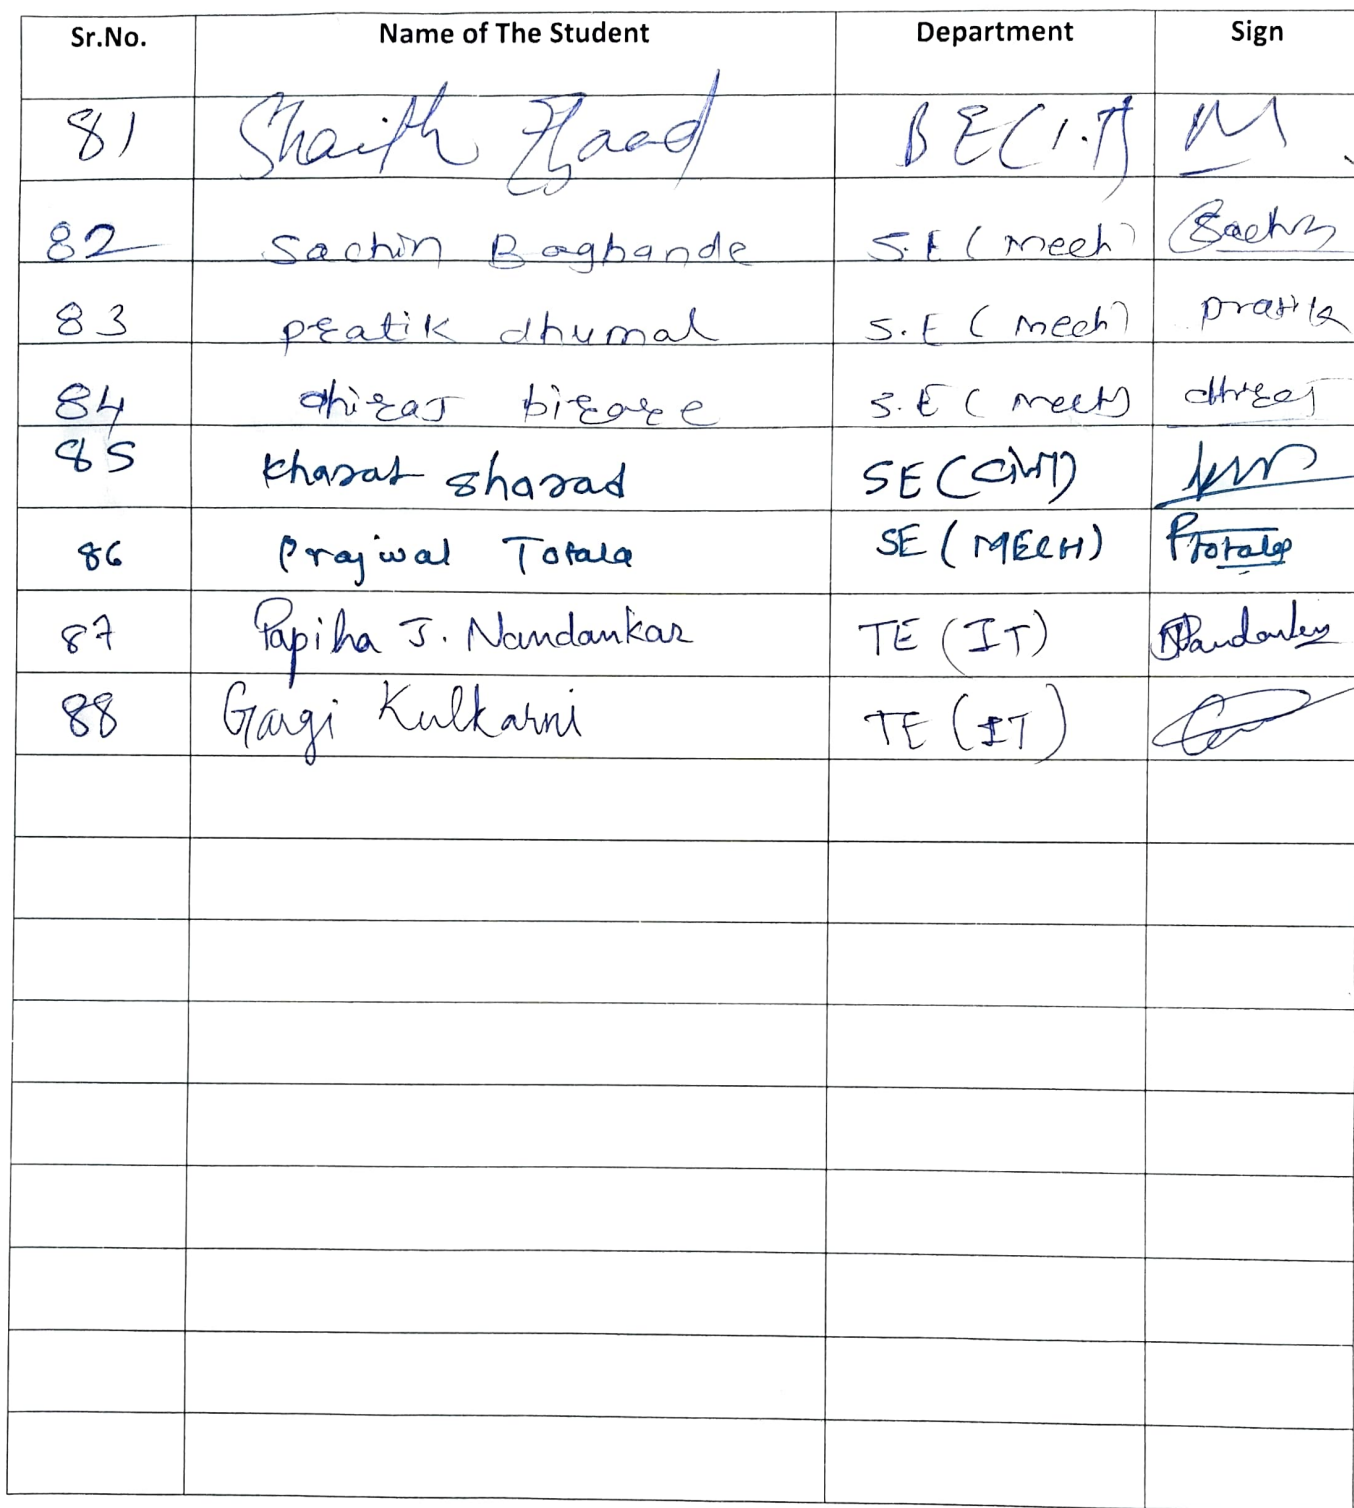 Sr.No. Name of The Student Department Sign
81 Shaikh Zaad BE(I.T)
82 Sachin Bagbande S.E (Mech) Sachin
83 pratik dhumal S.E (Mech) pratik
84 dhiraj birare S.E (Mech) dhiraj
85 Kharat Sharad SE (Civil)
86 Prajwal Totala SE (MECH) PTotala
87 Papiha J. Nandankar TE (IT) PNandankar
88 Gargi Kulkarni TE (IT)